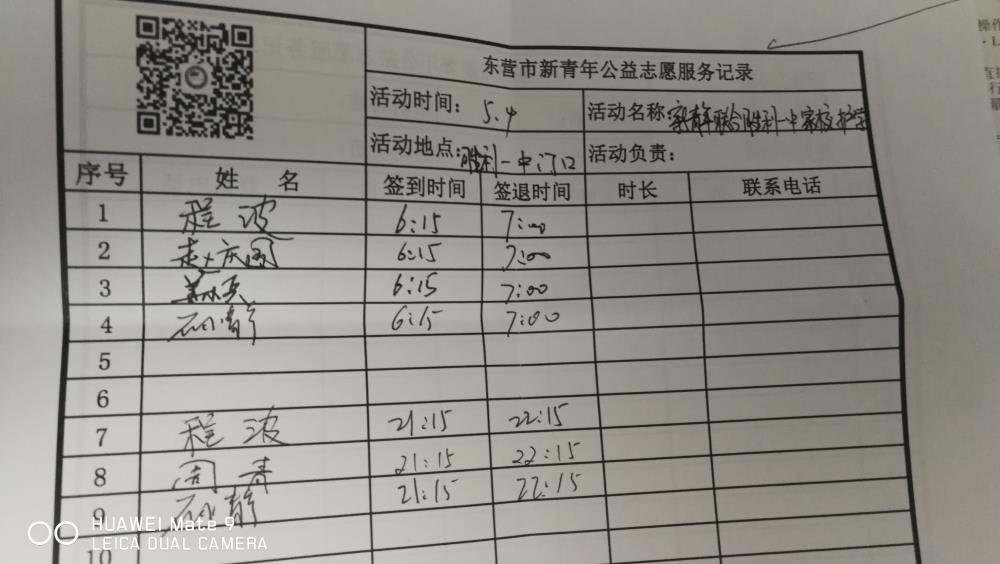 东营市新青年公益志愿服务记录
活动时间: 5.4 活动名称: 联合胜利一中家校护学
活动地点: 胜利一中门口 活动负责:
序号 姓 名 签到时间 签退时间 时长 联系电话
1 程波 6:15 7:00
2 赵庆国 6:15 7:00
3 6:15 7:00
4 静 6:15 7:00
5
6
7 程波 21:15 22:15
8 周青 21:15 22:15
9 静 21:15 22:15
10
HUAWEI Mate 9
LEICA DUAL CAMERA
操作